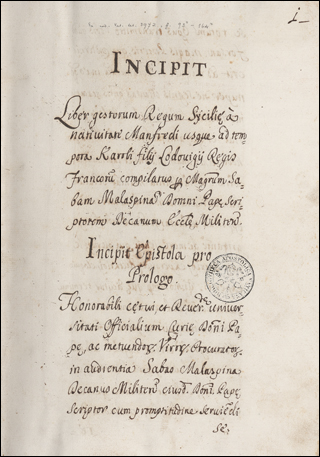 i
INCIPIT
Liber gestorum Regum Sycilię à
nativitati Manfredi usque ad tem
pora Karoli filij Lodovigij Regis
Francorũ compilatus p Magrum Sa
bam Malaspina Domni Pape Scri
ptorem Decanum Eccle Militen
Incipit Epistola pro
Prologo.
Honorabili cętui et Rever univer
sitati Officialium Curię Domni Pa
pę, ac metuendoȝ Viroȝ Procuratoȝ
in audientia Sabas Malaspina
Decanus Militen eiusd. Domni Papę
Scriptor cum promptitudine servię̃di
se: